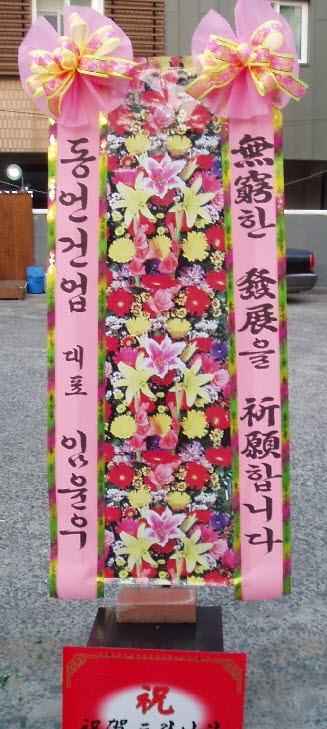 동언건업 대표 임윤우
無窮한 發展을 祈願합니다
祝